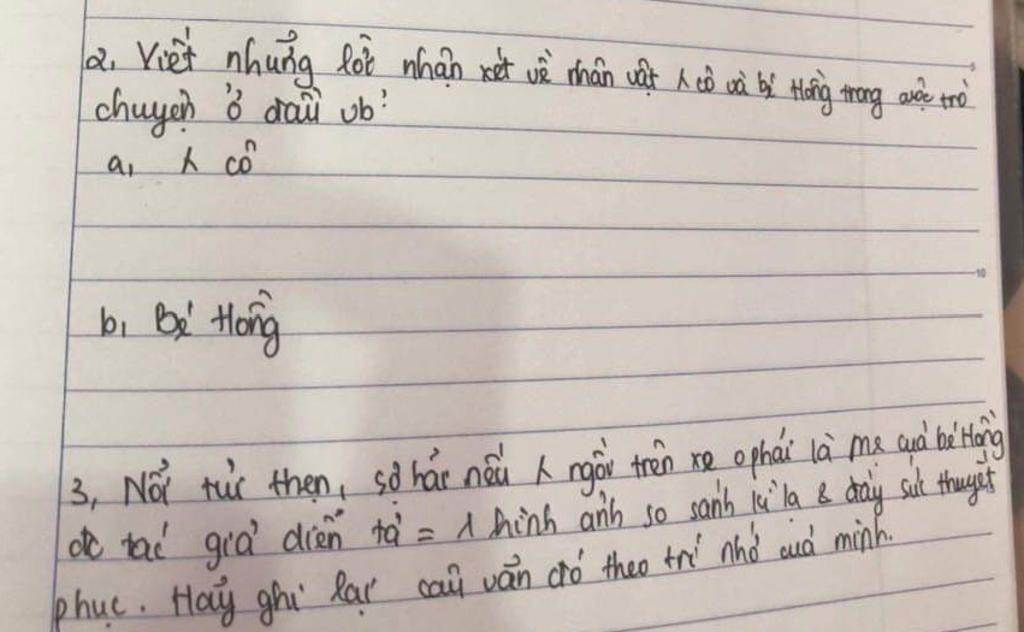 2, Viết những lời nhận xét về nhân vật λ cô và bé Hồng trong cuộc trò
chuyện ở đầu vb?
a, λ cô
10
b, Bé Hồng
3, Nỗi tức thẹn, sợ hãi nếu λ ngồi trên xe o phải là mẹ của bé Hồng
đc tác giả diễn tả = 1 hình ảnh so sánh kì lạ & đầy sức thuyết
phục. Hãy ghi lại câu văn đó theo trí nhớ của mình.